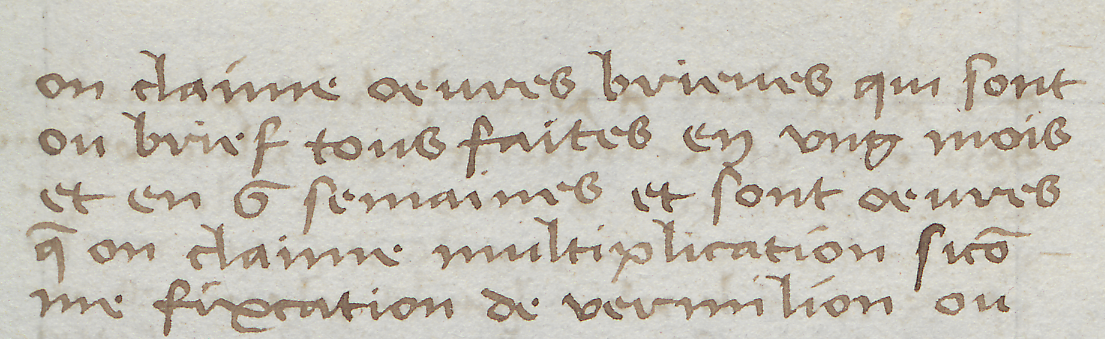 on claime oeuvres brieues qui sont
ou brief tous faites en vng mois
et en 6 semaines et sont oeuures
q̄ on claime multiplication sicō
me fixcation de vermilion ou